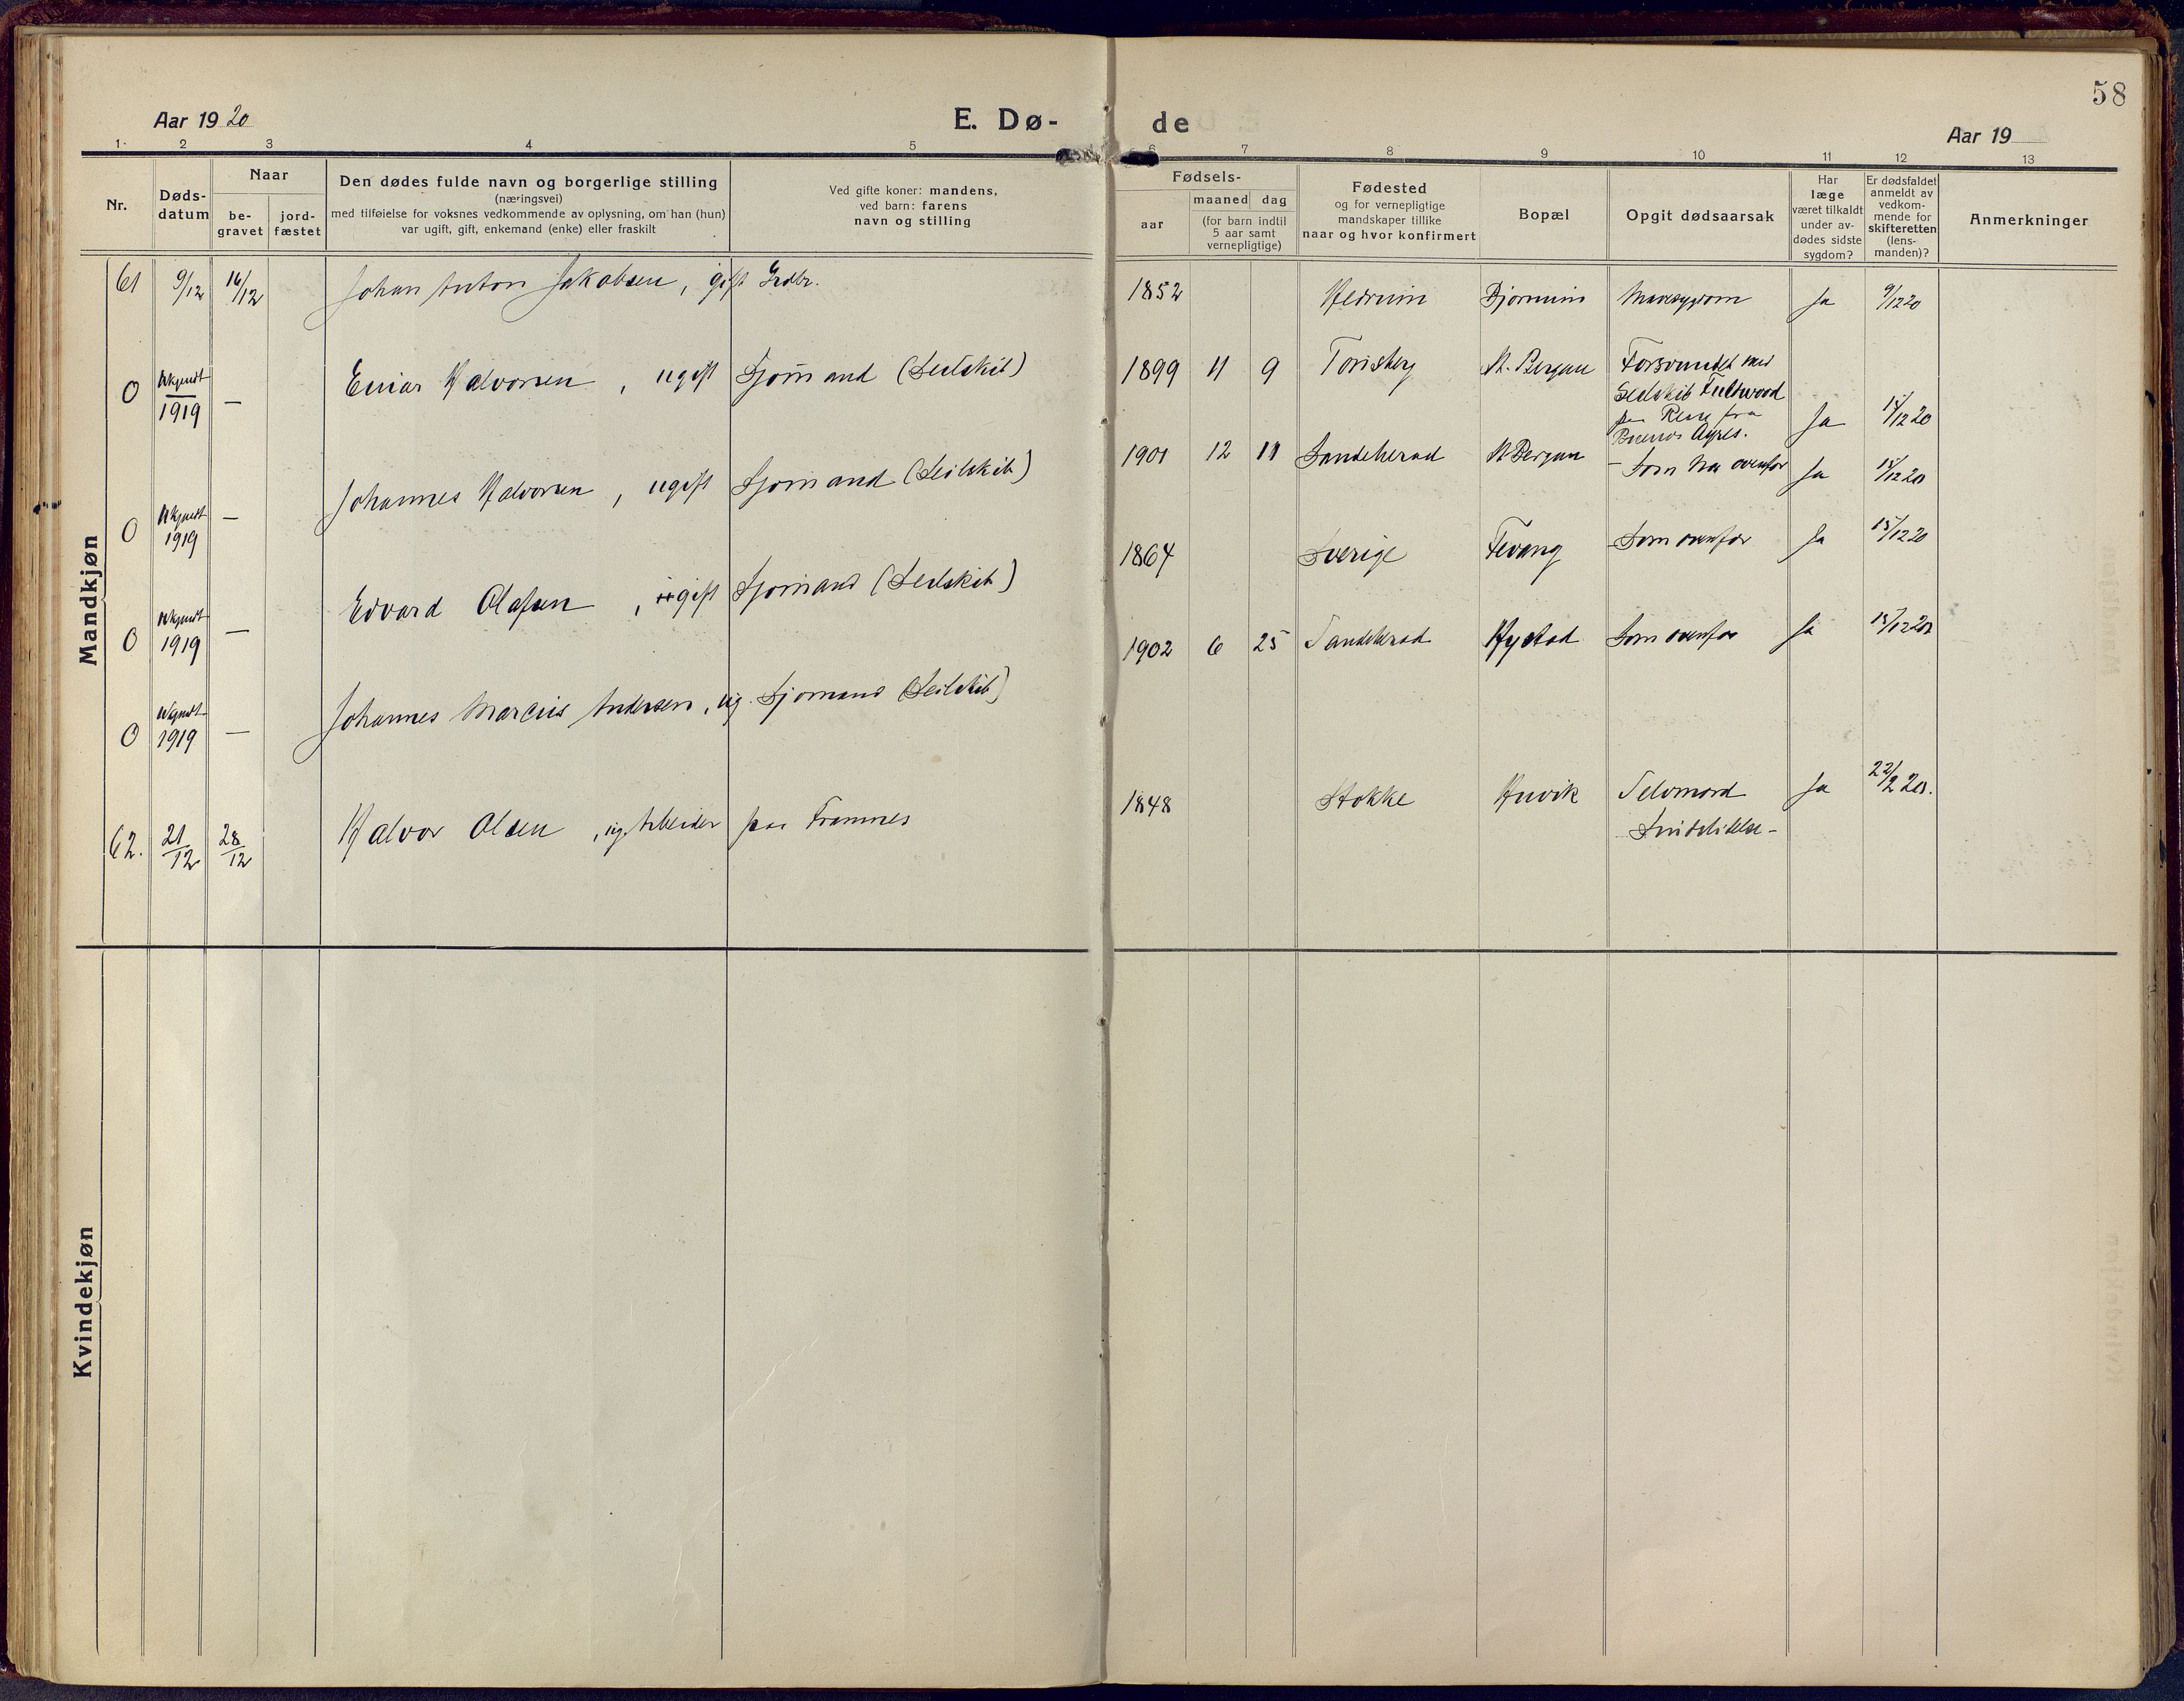 58
Aar 1920
E. Dø-
de
Aar 19
1 2 3 4 5
6 7 8 9 10 11 12 13
Nr.
Døds-
datum
Naar
be-
gravet
jord-
fæstet
Den dødes fulde navn og borgerlige stilling
(næringsvei)
med tilføielse for voksnes vedkommende av oplysning, om han (hun)
var ugift, gift, enkemand (enke) eller fraskilt
Ved gifte koner: mandens,
ved barn: farens
navn og stilling
Fødsels-
aar
maaned dag
(for barn indtil
5 aar samt
vernepligtige)
Fødested
og for vernepligtige
mandskaper tillike
naar og hvor konfirmert
Bopæl
Opgit dødsaarsak
Har
læge
været tilkaldt
under av-
dødes sidste
sygdom?
Er dødsfaldet
anmeldt av
vedkom-
mende for
skifteretten
(lens-
manden)?
Anmerkninger
Mandkjøn
61 9/12 16/12 Johan Anton Jakobsen, gift Grdbr. 1852 Hedrum Bjørnum Mavesygdom Ja 9/12 20
0 Ukjendt
1919 — Einar Halvorsen, ugift Sjømand (Seilskib) 1899 11 9 Tønsberg N. Bergan Forsvundet med
Seilskib Fultwood
paa Reise fra
Buenos Ayres. Ja 15/12 20
0 Ukjendt
1919 — Johannes Halvorsen, ugift Sjømand (Seilskib) 1901 12 11 Sandeherad N Bergan – Som No ovenfor Ja 15/12 20
0 Ukjendt
1919 — Edvard Olafsen, gift Sjømand (Seilskib) 1864 Sverige Fevang Som ovenfor Ja 15/12 20
0 Ukjendt
1919 — Johannes Marcius Andersen, ug. Sjømand (Seilskib) 1902 6 25 Sandeherad Hystad Som ovenfor Ja 15/12 20
62. 21/12 28/12 Halvor Olsen, ug. Arbeider paa Framnes 1848 Stokke Huvik Selvmord
Sindslidelse – Ja 22/12 20.
Kvindekjøn